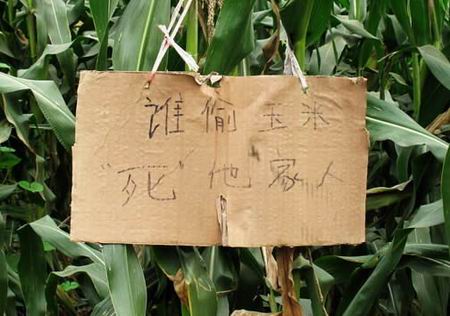 誰偷玉米
"死"他家人